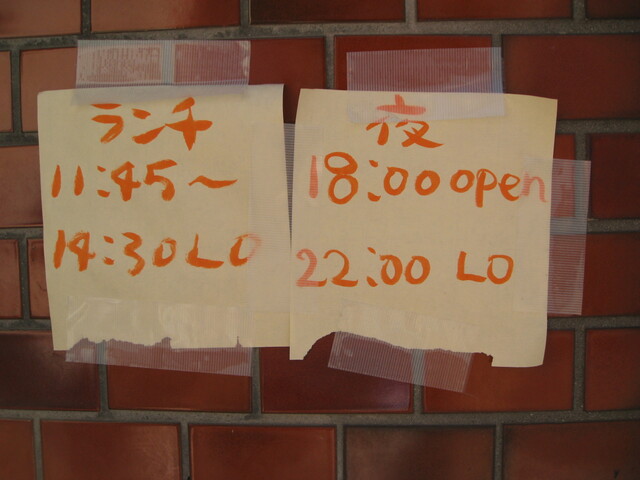 ランチ
11:45～
14:30 LO
夜
18:00 open
22:00 LO